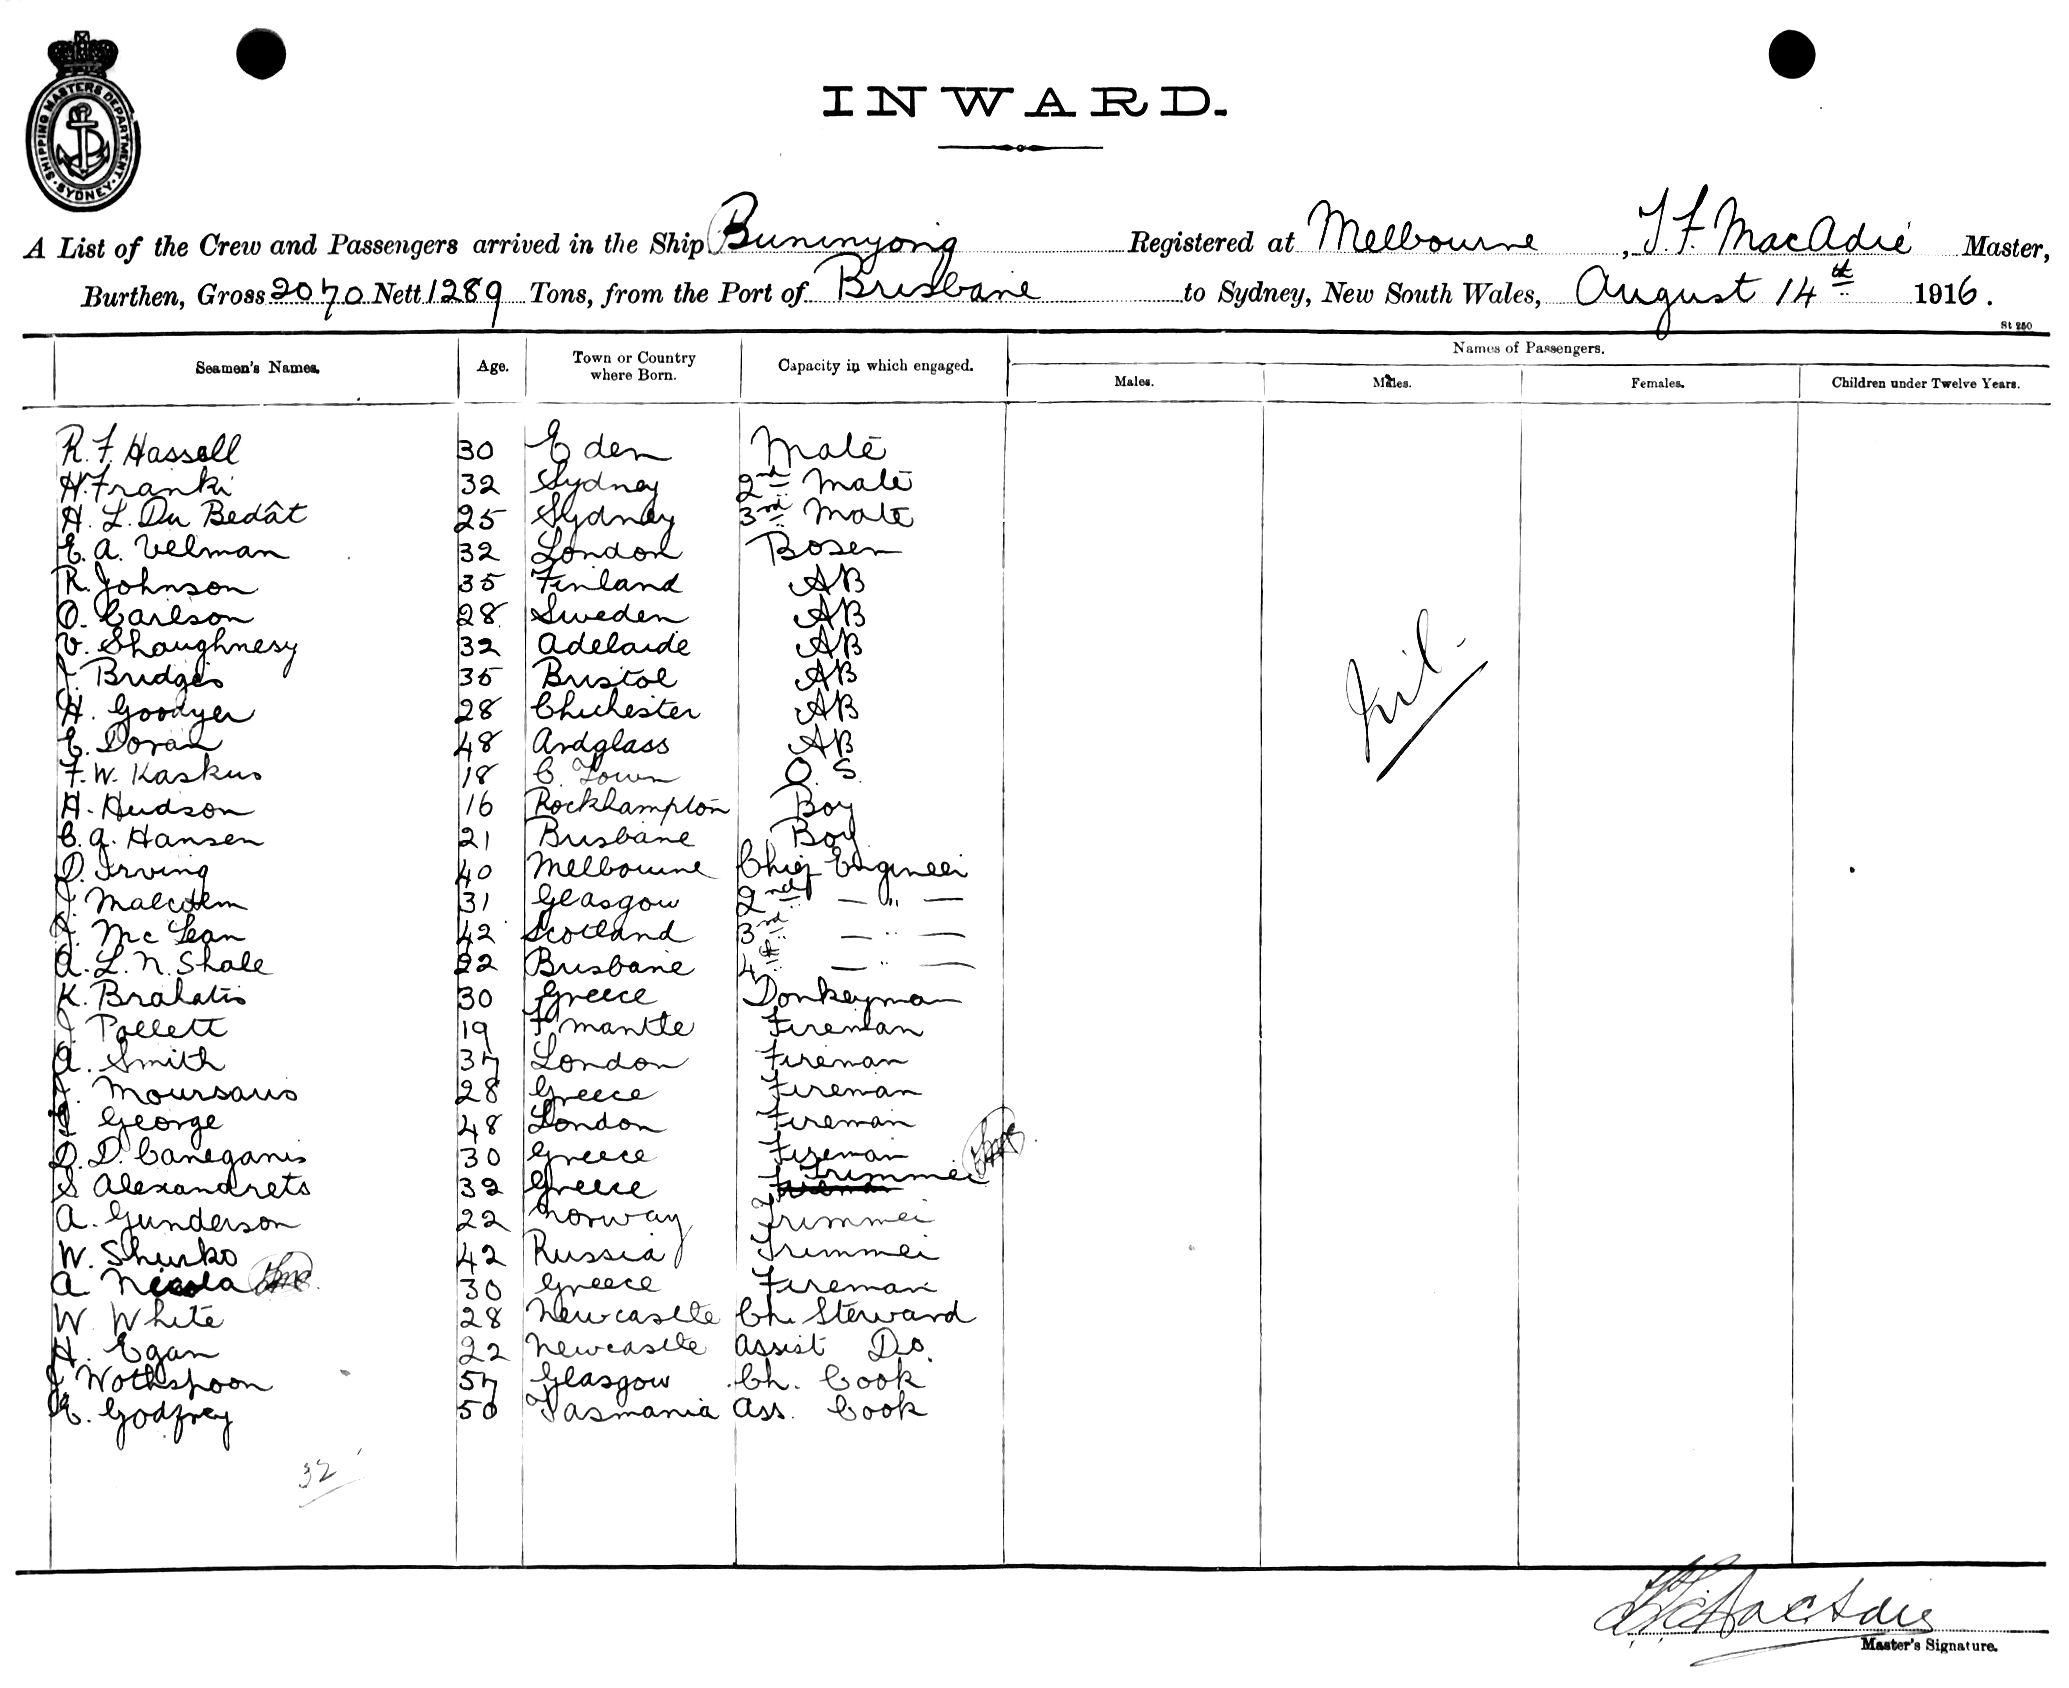 SHIPPING MASTERS DEPARTMENT. SYDNEY
INWARD.
A List of the Crew and Passengers arrived in the Ship Buninyong Registered at Melbourne, T. F. MacAdie Master,
Burthen, Gross 2070 Nett 1289 Tons, from the Port of Brisbane to Sydney, New South Wales, August 14th 1916.
St 250
Seamen's Names. Age. Town or Country where Born. Capacity in which engaged. Names of Passengers.
Males. Males. Females. Children under Twelve Years.
R. F. Hassell 30 Eden Mate
H. Franki 32 Sydney 2nd Mate
H. L. Du Bedât 25 Sydney 3rd Mate
E. A. Velman 32 London Bosen
R. Johnson 35 Finland AB
O. Carlson 28 Sweden AB
V. Shaughnesy 32 Adelaide AB
J. Bridges 35 Bristol AB
H. Goodyer 28 Chichester AB
E. Doran 48 Ardglass AB
F. W. Kaskus 18 C. Town O. S.
H. Hudson 16 Rockhampton Boy
C. A. Hansen 21 Brisbane Boy
D. Irving 40 Melbourne Chief Engineer
J. Malcolm 31 Glasgow 2nd — " —
J. McLean 42 Scotland 3rd — " —
A. L. N. Shale 22 Brisbane 4th — " —
K. Brahatis 30 Greece Donkeyman
J. Pollett 19 F.mantle Fireman
A. Smith 37 London Fireman
J. Moursaris 28 Greece Fireman
J. George 48 London Fireman
D. D. Caneganis 30 Greece Fireman
S Alexandrets 32 Greece Trimmer
A. Gunderson 22 Norway Trimmer
W. Shurko 42 Russia Trimmer
A Nicola 30 Greece Fireman
W White 28 Newcastle Ch. Steward
H. Egan 22 Newcastle Assist Do.
J Wotherspoon 57 Glasgow Ch. Cook
E. Godfrey 50 Tasmania Ass. Cook
Nil.
32
T. F. MacAdie
Master's Signature.